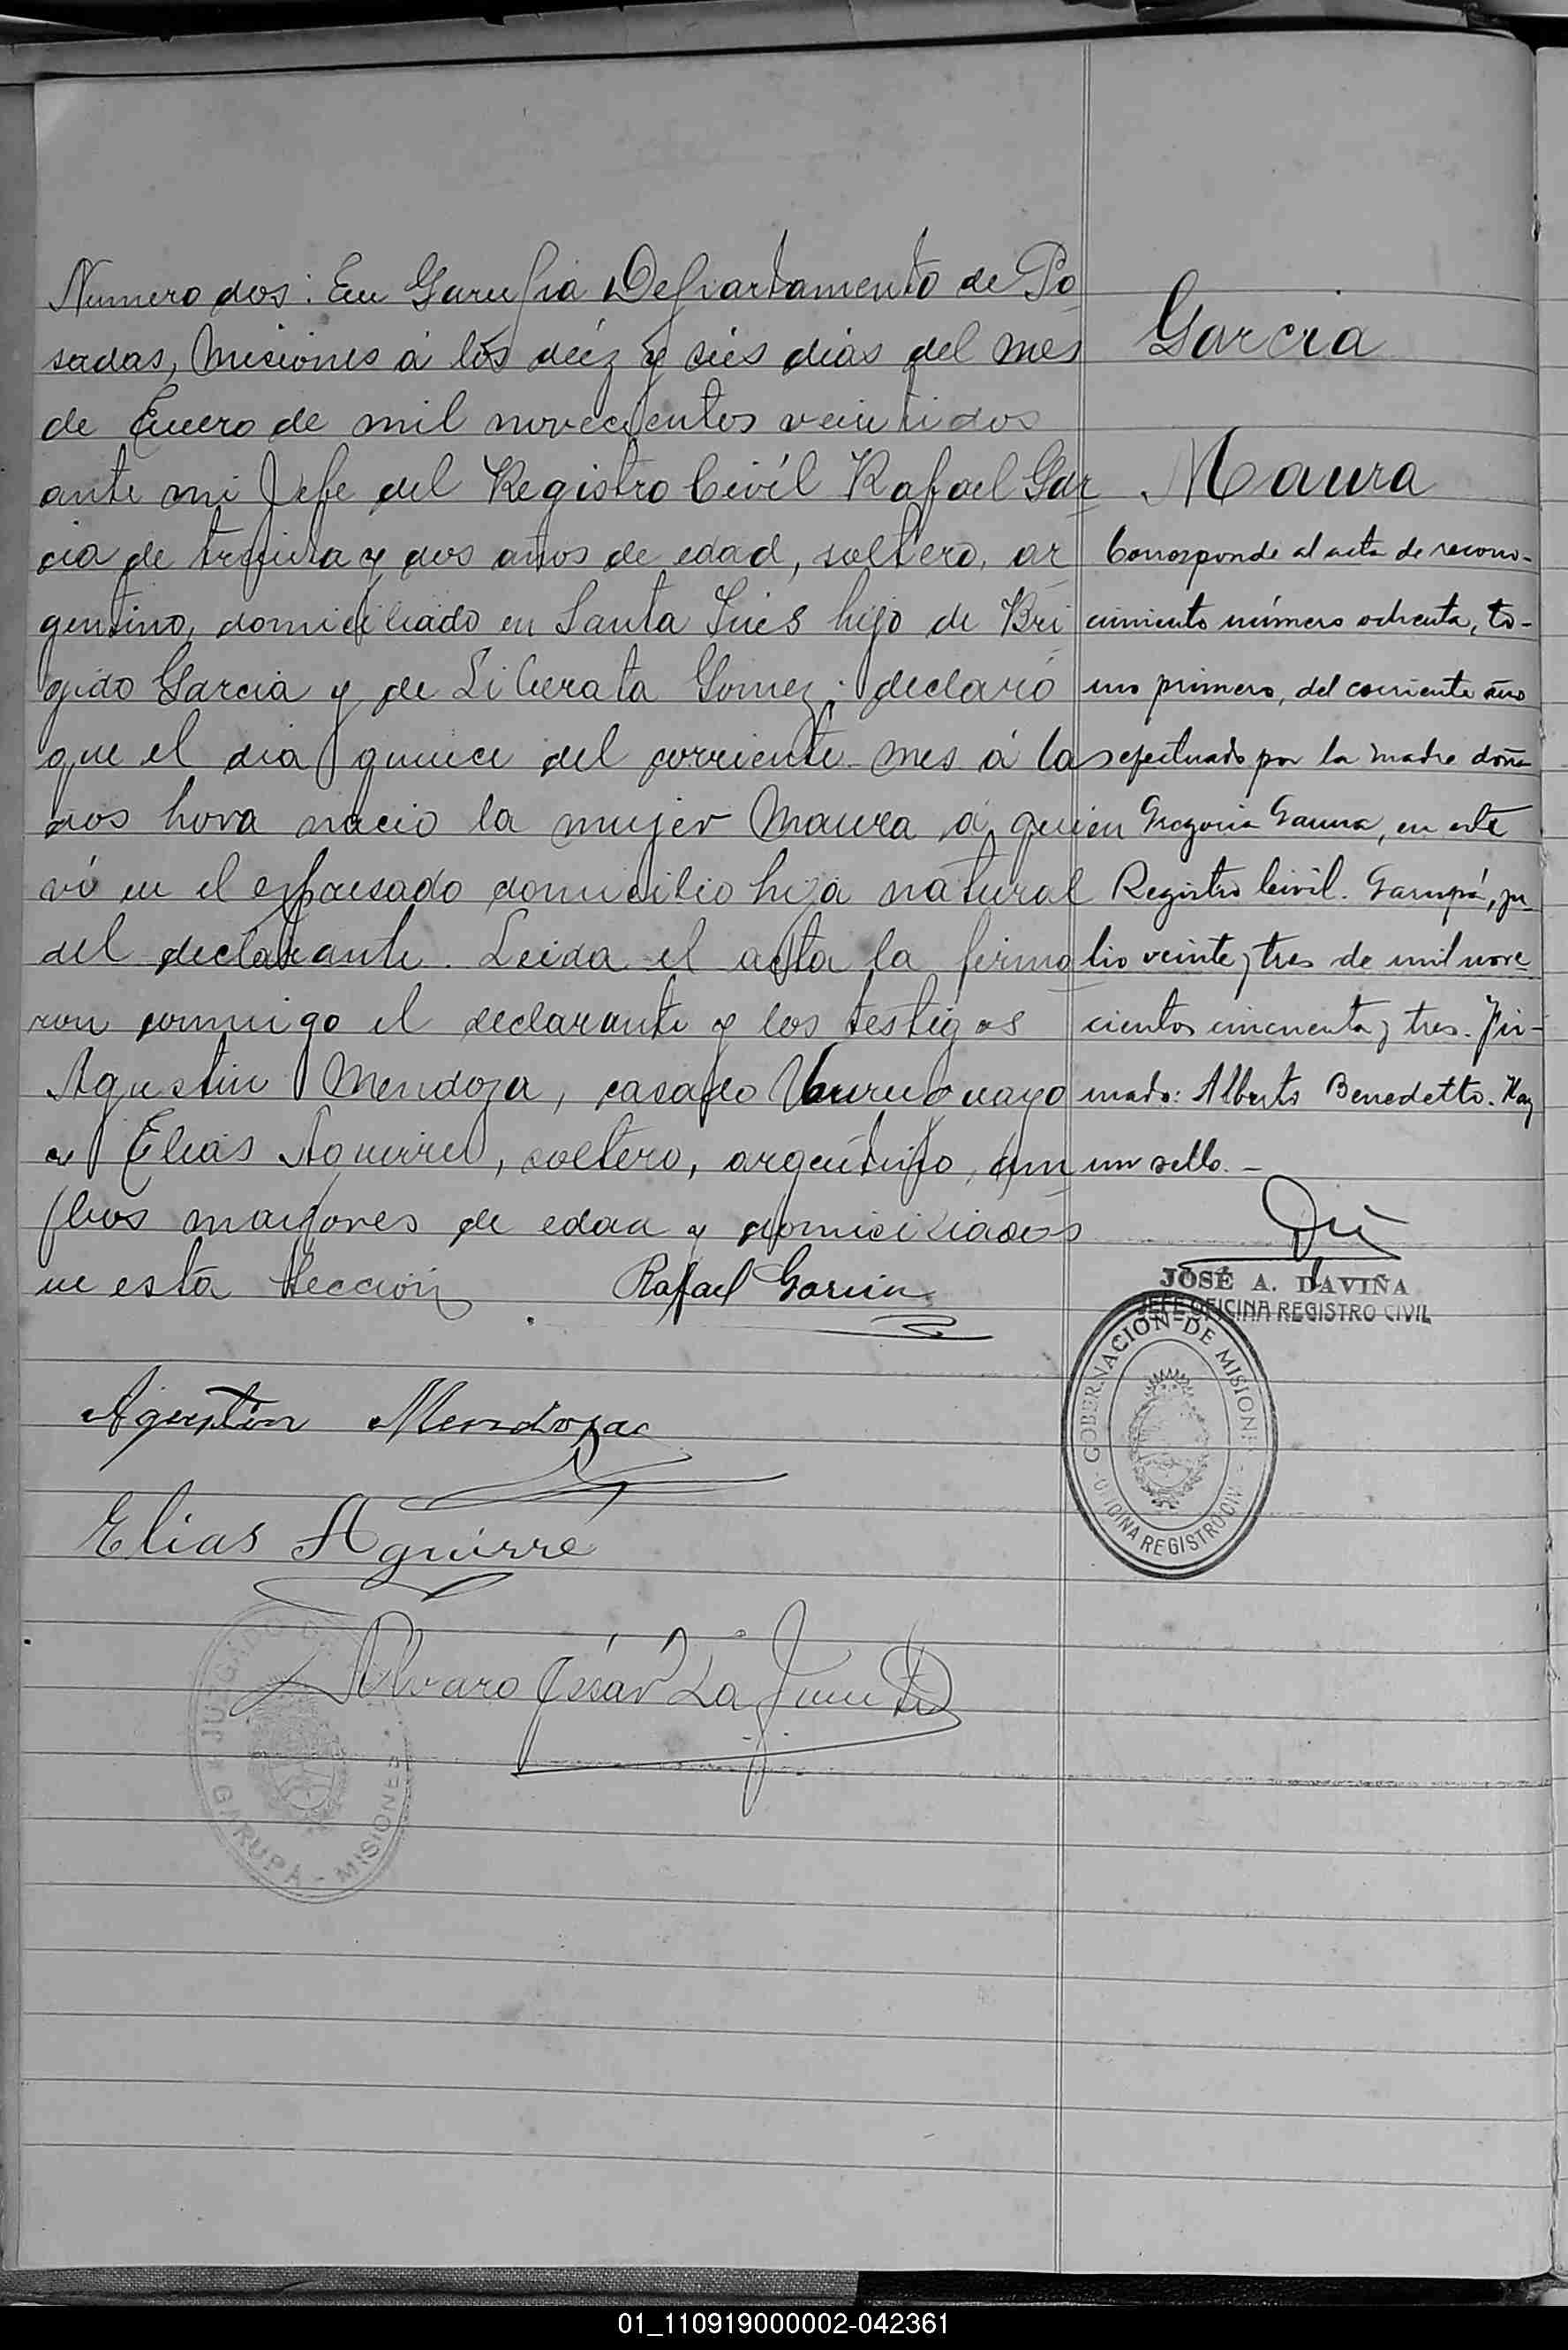 Numero dos: En Garupa Departamento de Po
sadas, Misiones á los diéz y seis dias del mes
de Enero de mil novecientos veintidos
ante mi Jefe del Registro Civíl Rafael Gar
cia de treinta y dos años de edad, soltero, ar
gentino, domiciliado en Santa Inés hijo de Bri
gido Garcia y de Liberata Gomez; declaró
que el dia quince del corriente mes á las
dos hora nació la mujer Maura á quien
vó en el expresado domicilio hija natural
del declarante. Leida el acta la firma
ron conmigo el declarante y los testigos
Agustin Mendoza, casado Uruguayo
y Elias Aguirre, soltero, argentino, am
bos mayores de edad y domiciliados
en esta Sección
Rafael Garcia
Agustin Mendoza
Elias Aguirre
Alvaro César La Fuente
JUZGADO DE
GARUPÁ - MISIONES
Garcia
Maura
Corresponde al acta de recono-
cimiento número ochenta, to-
mo primero, del corriente año
efectuado por la madre doña
Gregoria Gauna, en este
Registro Civil. Garupá, ju
lio veinte y tres de mil nove
cientos cincuenta y tres. Fir-
mado: Alberto Benedetto. Hay
un sello.-
JOSÉ A. DAVIÑA
JEFE OFICINA REGISTRO CIVIL
GOBERNACION DE MISIONES
OFICINA REGISTRO CIVIL
01_110919000002-042361